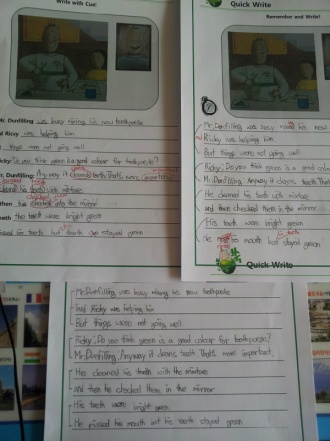 Write with Cue!
Mr. Dunfilling was busy mixing his new toothpaste
and Ricky was helping him
things were not going well
Ricky: Do you think green is a good colour for toothpaste?
Mr. Dunfilling: Anyway it cleans teeth. That's more important
cleaned his teeth with mixture
then he checked in the mirror
teeth the teeth were bright green
his teeth but stayed green
Quick Write
Remember and Write!
Mr. Dunfilling was busy his new
Ricky was helping him
But things were not going well
Ricky: Do you think green is a good colour
Mr. Dunfilling: Anyway it cleans teeth. That's
He cleaned his teeth with mixture
and then checked them in the mirror
His teeth were bright green
He his mouth but stayed green
Quick Write
Mr. Dunfilling was busy mixing his new toothpaste
and Ricky was helping him
But things were not going well
Ricky: Do you think green is a good colour for toothpaste?
Mr. Dunfilling: Anyway it cleans teeth. That's more important.
He cleaned his teeth with the mixture
and then he checked them in the mirror
His teeth were bright green
He rinsed his mouth but his teeth stayed green